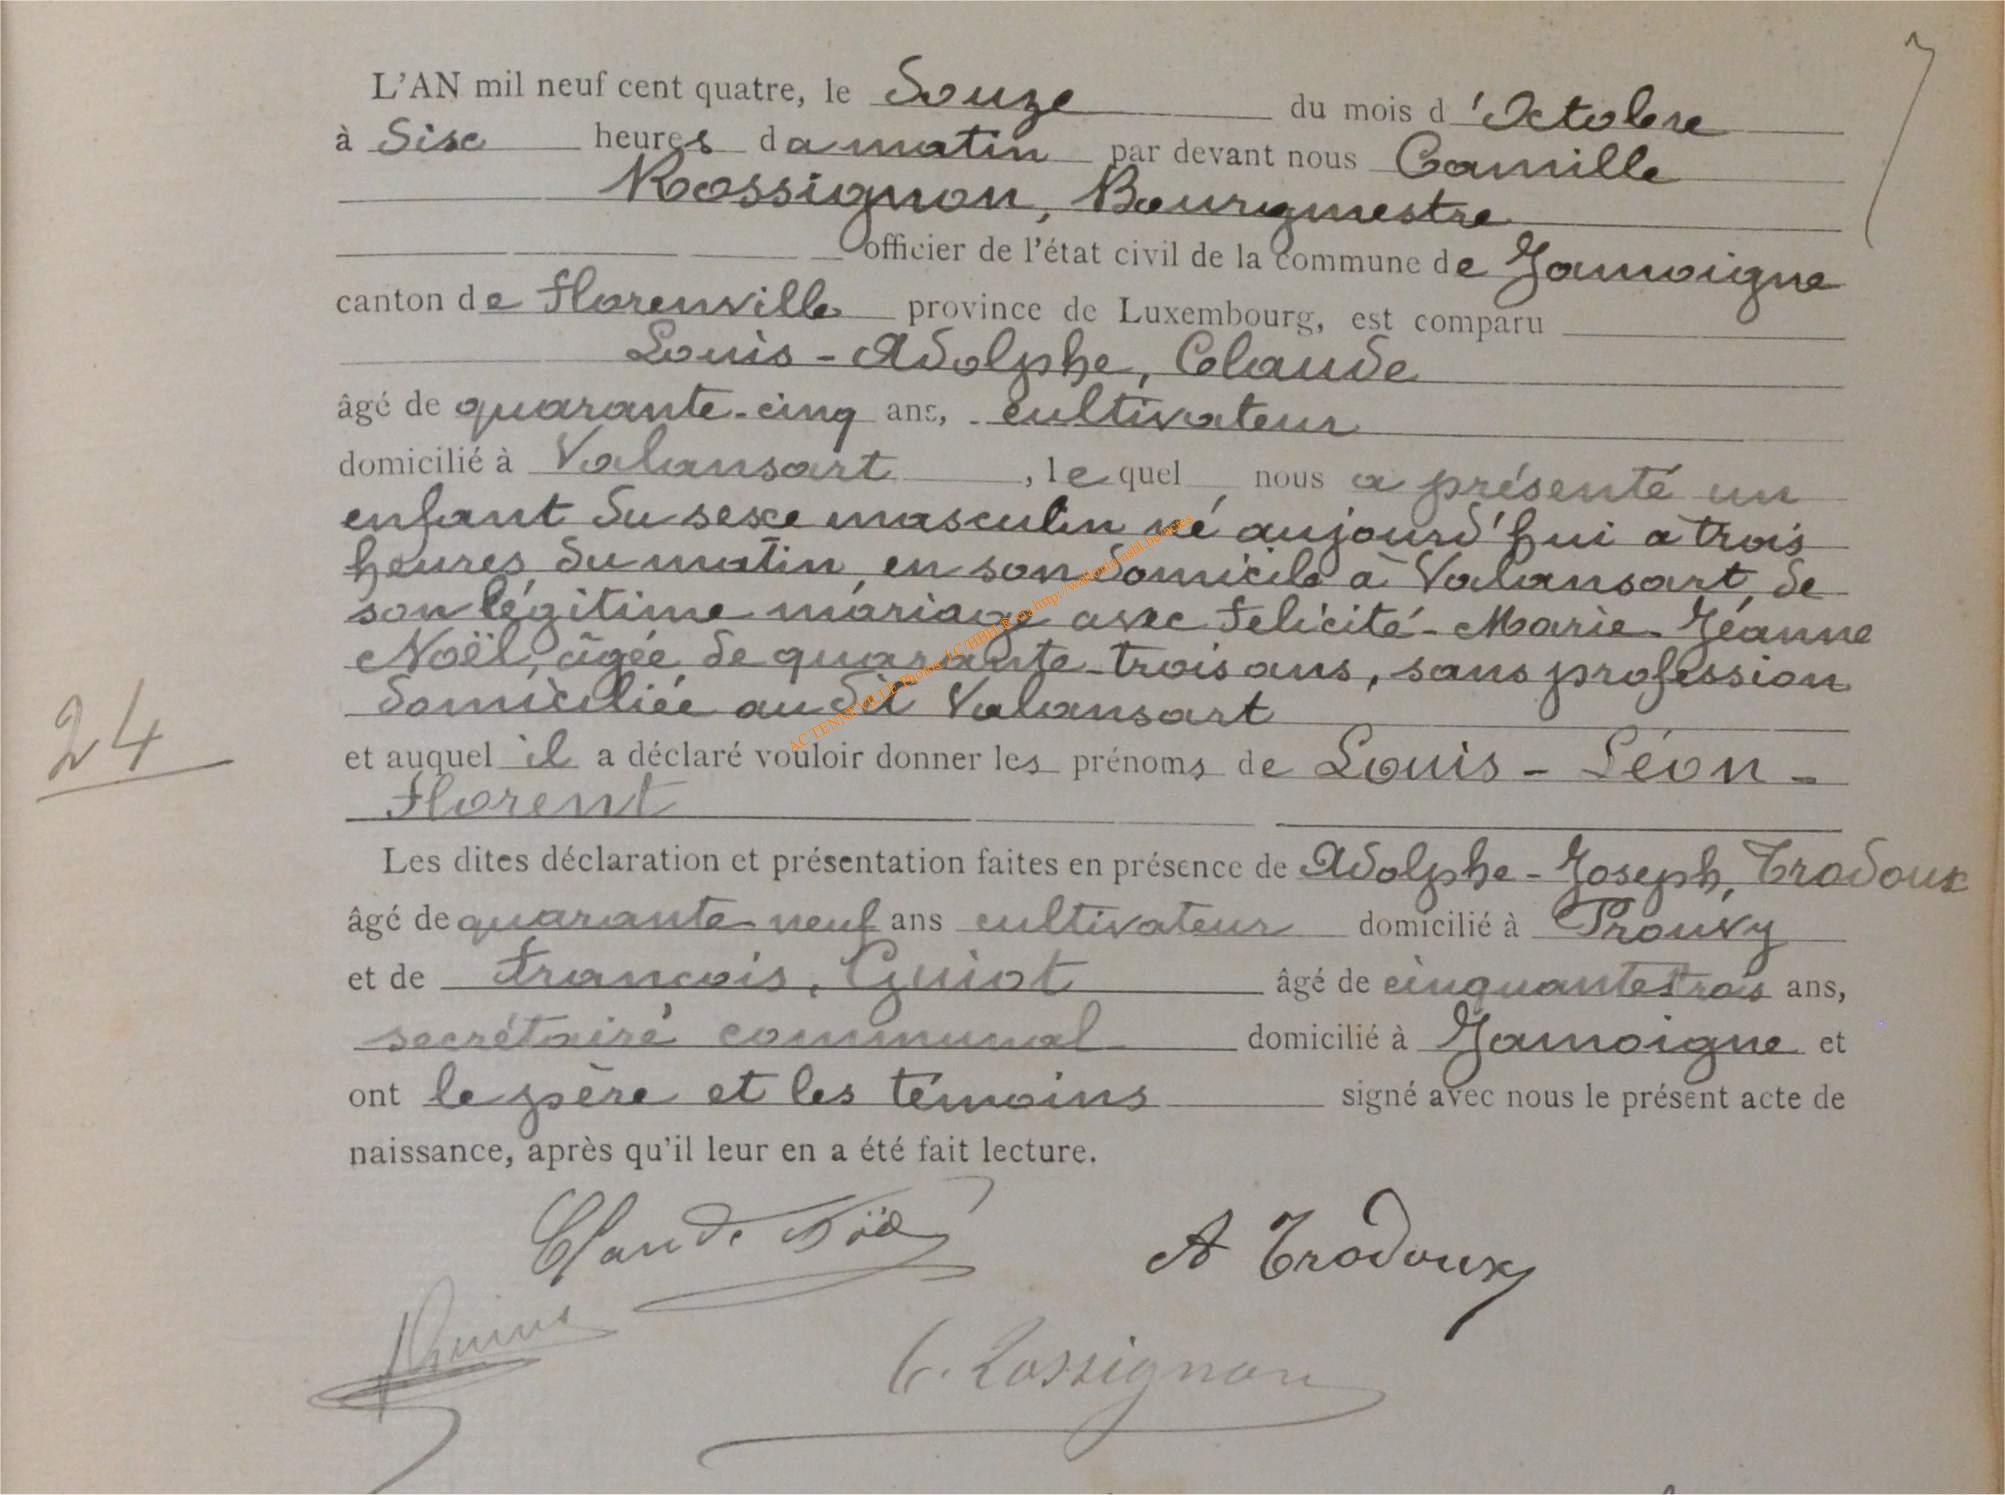 L'AN mil neuf cent quatre, le Douze du mois d'Octobre
à Six heures da matin par devant nous Camille
Rossignon, Bourgmestre
officier de l'état civil de la commune de Jamoigne
canton de Florenville province de Luxembourg, est comparu
Louis-Adolphe, Claude
âgé de quarante-cinq ans, cultivateur
domicilié à Valansart, lequel nous a présenté un
enfant du sexe masculin né aujourd'hui a trois
heures du matin, en son domicile à Valansart, de
son légitime mariage avec Felicité-Marie-Jéanne
Noël, âgée de quarante-trois ans, sans profession
domiciliée au dit Valansart
24
et auquel il a déclaré vouloir donner les prénoms de Louis-Léon-
Florent
Les dites déclaration et présentation faites en présence de Adolphe-Joseph, Trodoux
âgé de quarante-neuf ans cultivateur domicilié à Prouvy
et de Francois, Guiot âgé de cinquante trois ans,
secrétaire communal domicilié à Jamoigne et
ont le père et les témoins signé avec nous le présent acte de
naissance, après qu'il leur en a été fait lecture.
Claude Noël A Trodoux
C. Rossignon